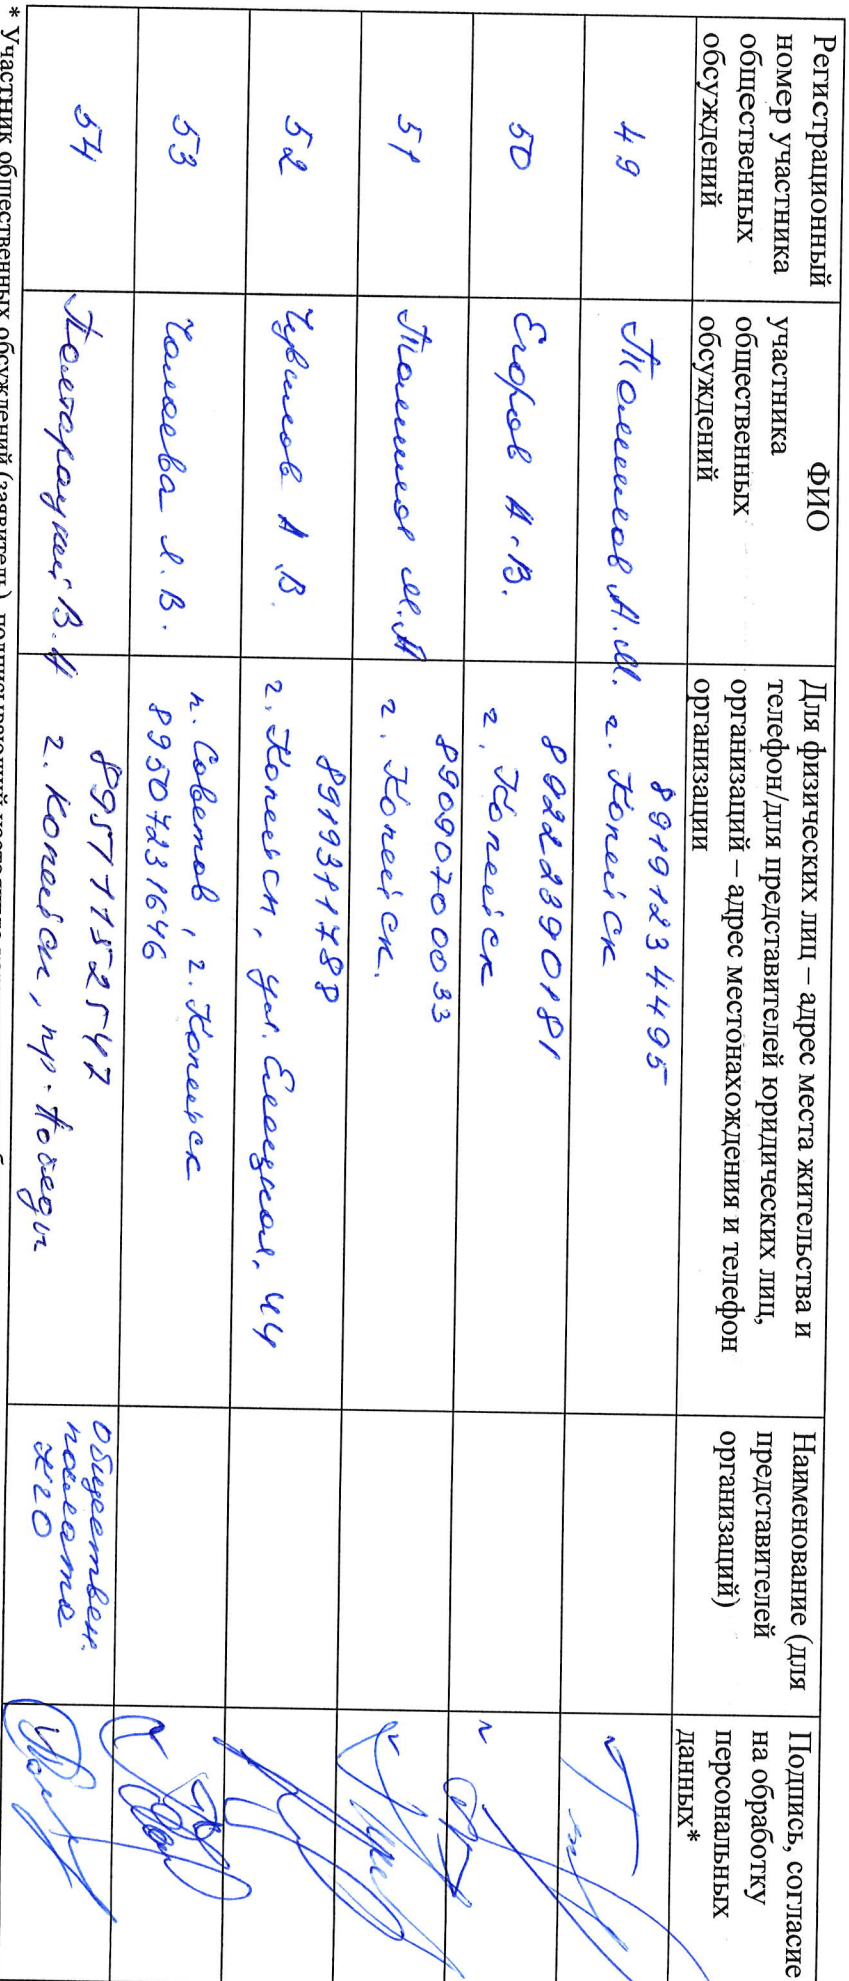 Регистрационный
номер участника
общественных
обсуждений
ФИО
участника
общественных
обсуждений
Для физических лиц – адрес места жительства и
телефон/для представителей юридических лиц,
организаций – адрес местонахождения и телефон
организации
Наименование (для
представителей
организаций)
Подпись, согласие
на обработку
персональных
данных*
49
А.М.
89191234495
г. Копейск
50
Егоров А.В.
89222390181
г. Копейск
51
М.А
89090700033
г. Копейск.
52
А.В.
8919311788
г. Копейск, ул. Елецкая, 44
53
Л.В.
п. Советов, г. Копейск
89507231646
54
Полторацкий В.А
89517152547
г. Копейск, пр. Победы
обществен.
палата
КГО
* Участник общественных обсуждений (заявитель), подписывающий